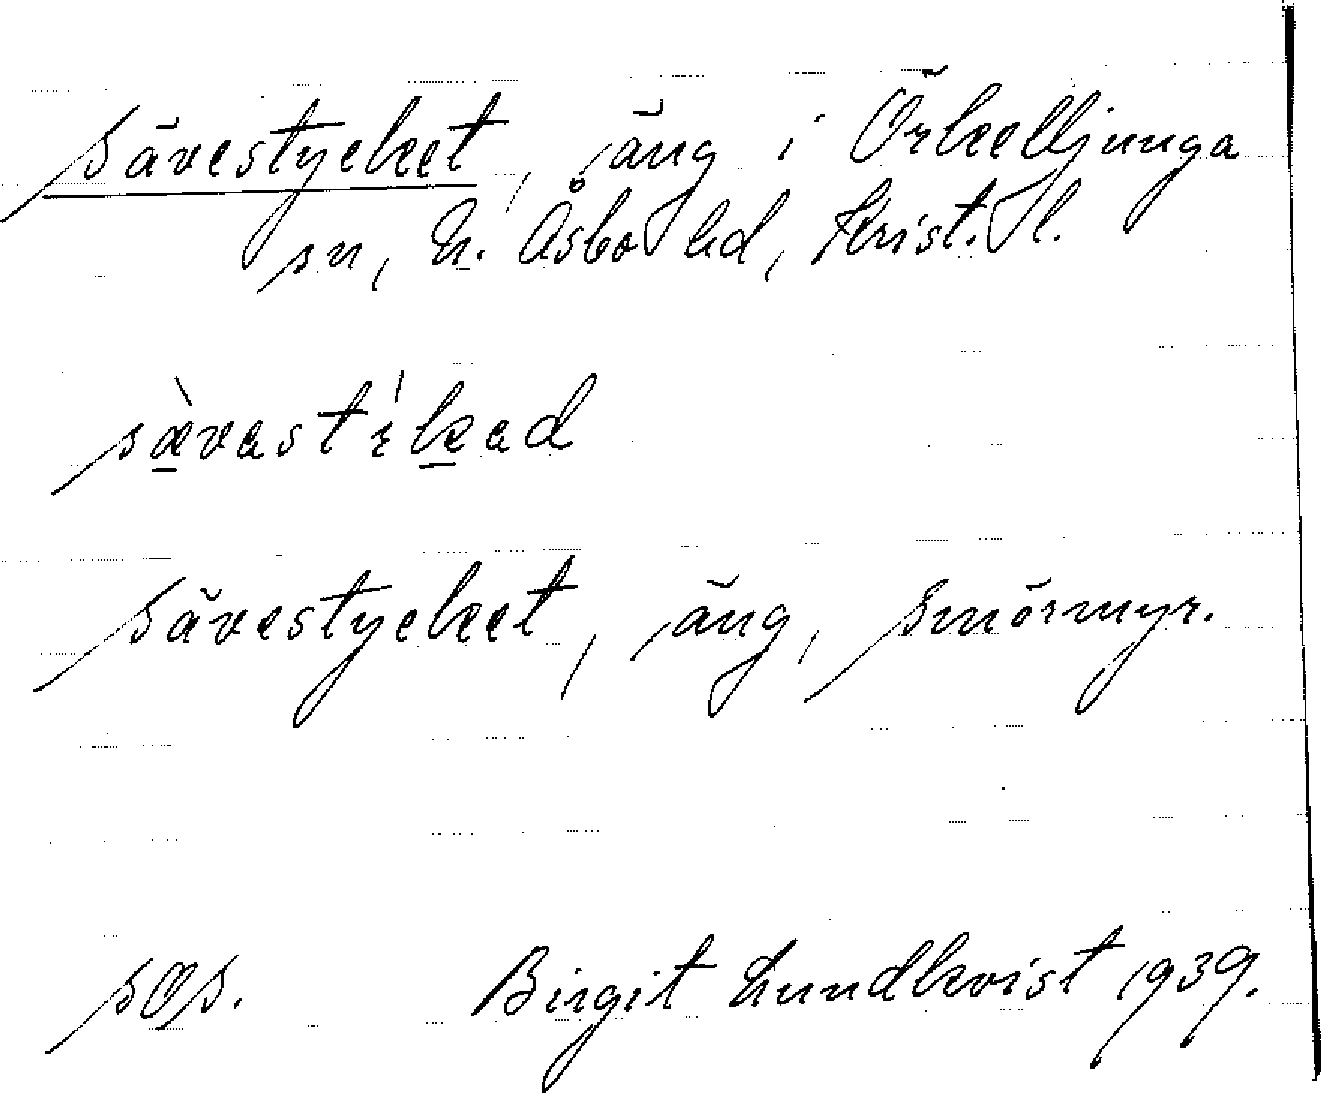 Sävestycket, äng i Örkelljunga
sn, N. Åsbo hd, Krist. l.
sävestycket, äng, Smörmyr.
Birgit Lundkvist 1939.